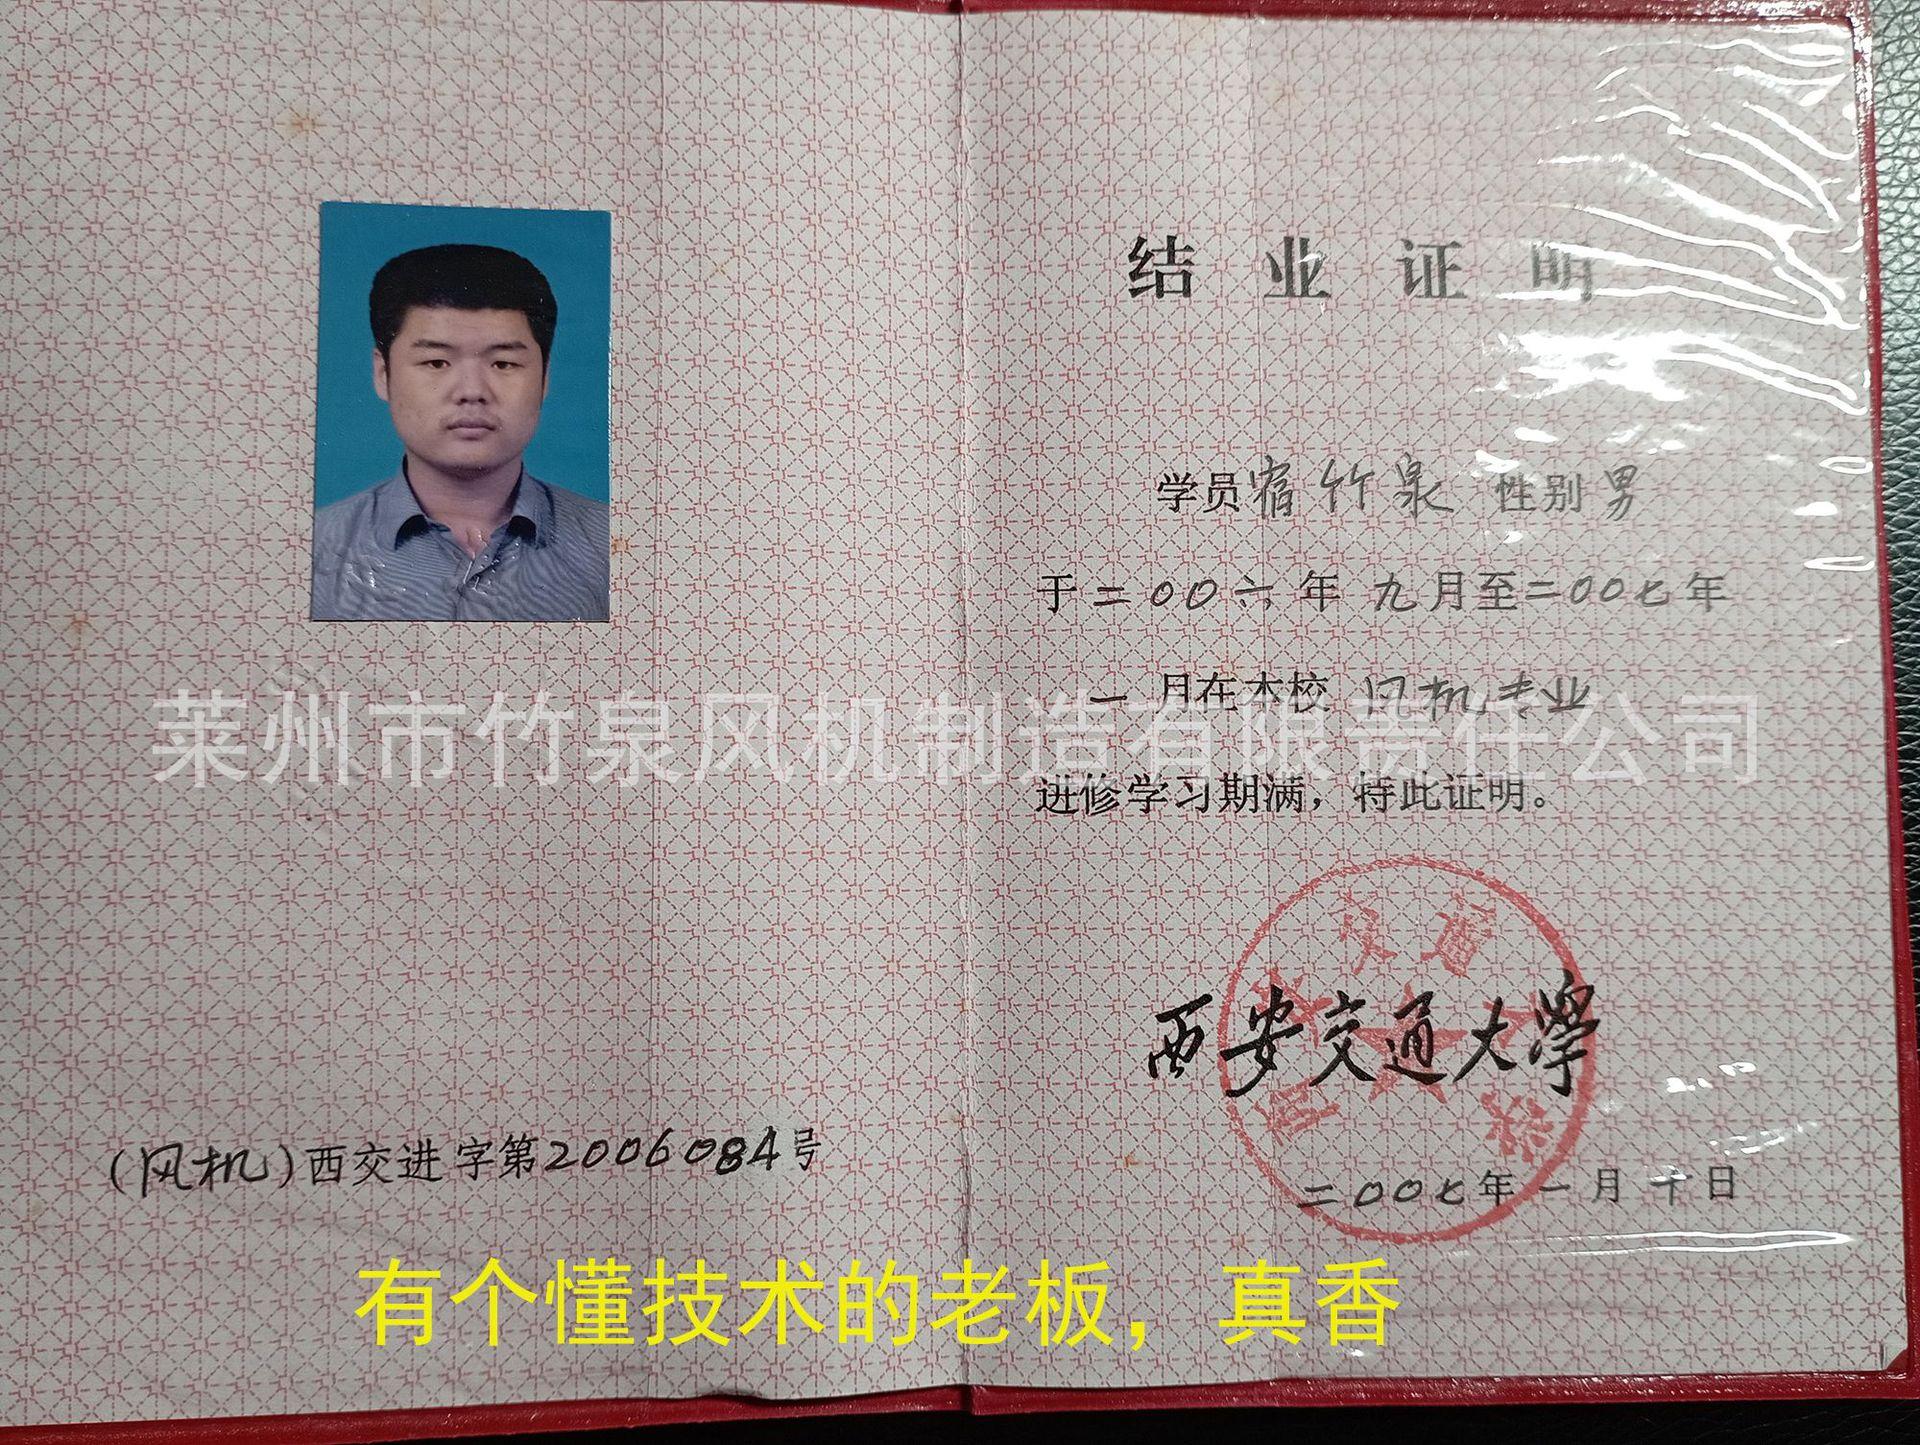 结业证明
学员宿竹泉 性别男
于二〇〇六年 九月至二〇〇七年
一月在本校 风机专业
进修学习期满，特此证明。
西安交通大學
二〇〇七年一月十日
(风机)西交进字第2006084号
莱州市竹泉风机制造有限责任公司
有个懂技术的老板，真香